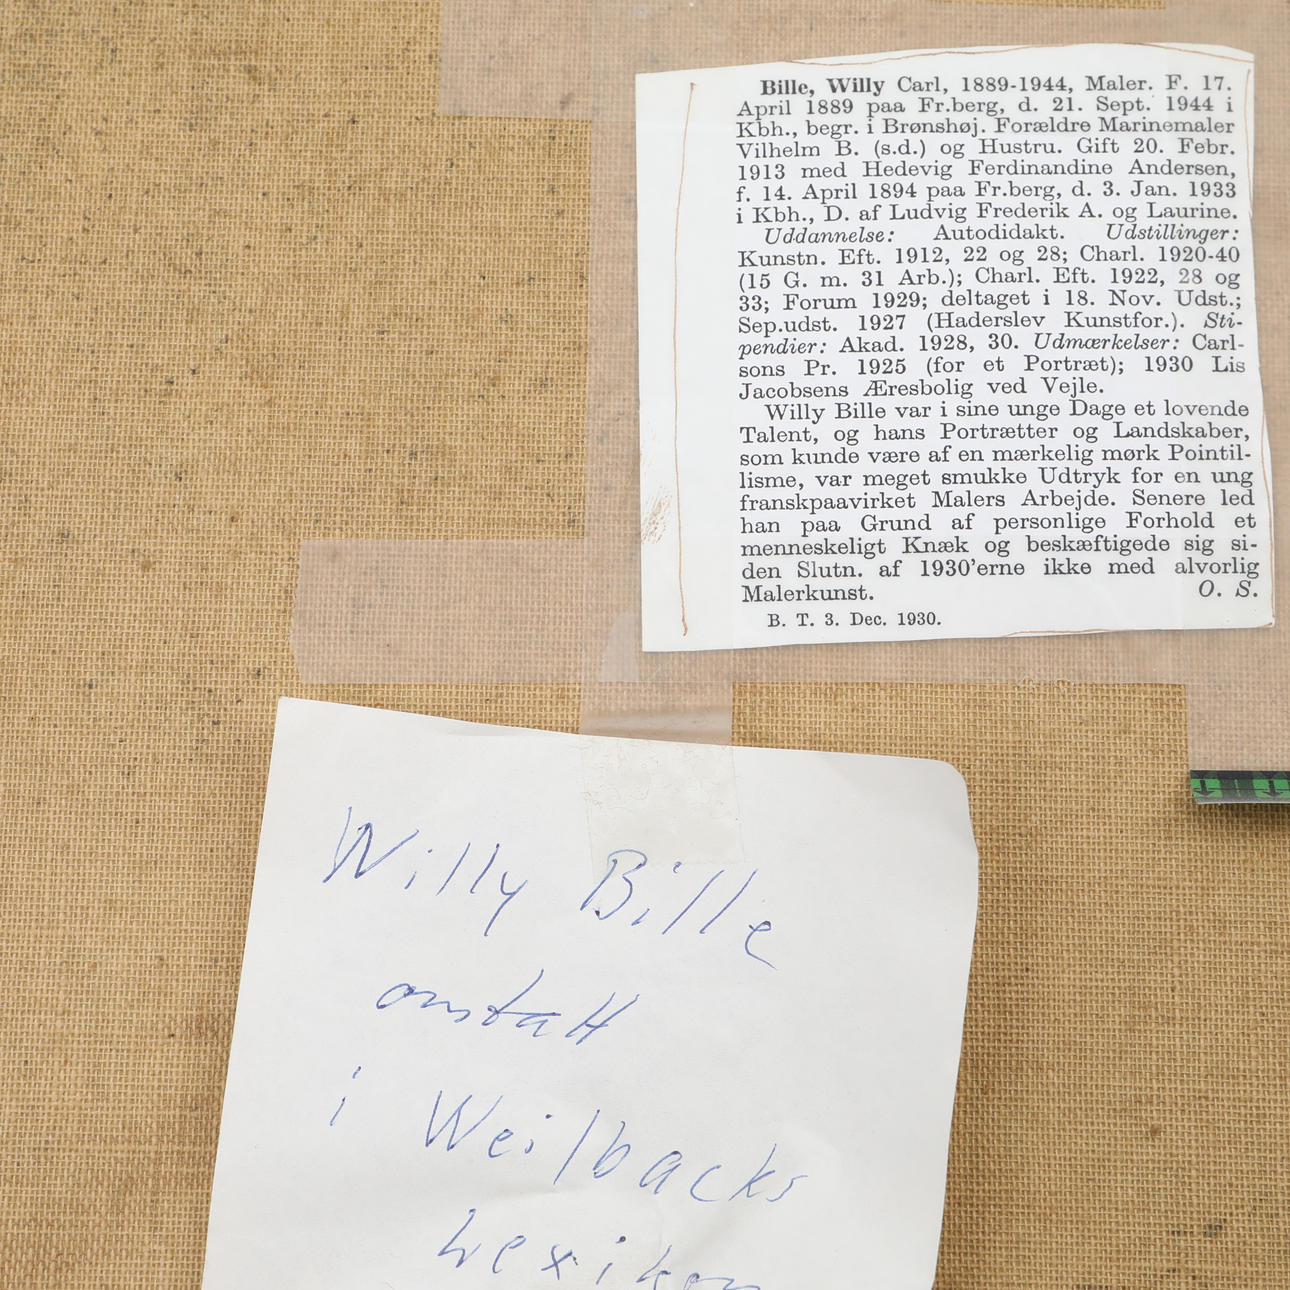 Bille, Willy Carl, 1889-1944, Maler. F. 17.
April 1889 paa Fr.berg, d. 21. Sept. 1944 i
Kbh., begr. i Brønshøj. Forældre Marinemaler
Vilhelm B. (s.d.) og Hustru. Gift 20. Febr.
1913 med Hedevig Ferdinandine Andersen,
f. 14. April 1894 paa Fr.berg, d. 3. Jan. 1933
i Kbh., D. af Ludvig Frederik A. og Laurine.
Uddannelse: Autodidakt. Udstillinger:
Kunstn. Eft. 1912, 22 og 28; Charl. 1920-40
(15 G. m. 31 Arb.); Charl. Eft. 1922, 28 og
33; Forum 1929; deltaget i 18. Nov. Udst.;
Sep.udst. 1927 (Haderslev Kunstfor.). Sti-
pendier: Akad. 1928, 30. Udmærkelser: Carl-
sons Pr. 1925 (for et Portræt); 1930 Lis
Jacobsens Æresbolig ved Vejle.
Willy Bille var i sine unge Dage et lovende
Talent, og hans Portrætter og Landskaber,
som kunde være af en mærkelig mørk Pointil-
lisme, var meget smukke Udtryk for en ung
franskpaavirket Malers Arbejde. Senere led
han paa Grund af personlige Forhold et
menneskeligt Knæk og beskæftigede sig si-
den Slutn. af 1930'erne ikke med alvorlig
Malerkunst. O. S.
B. T. 3. Dec. 1930.
Willy Bille
omtalt
i Weilbacks
Lexikon